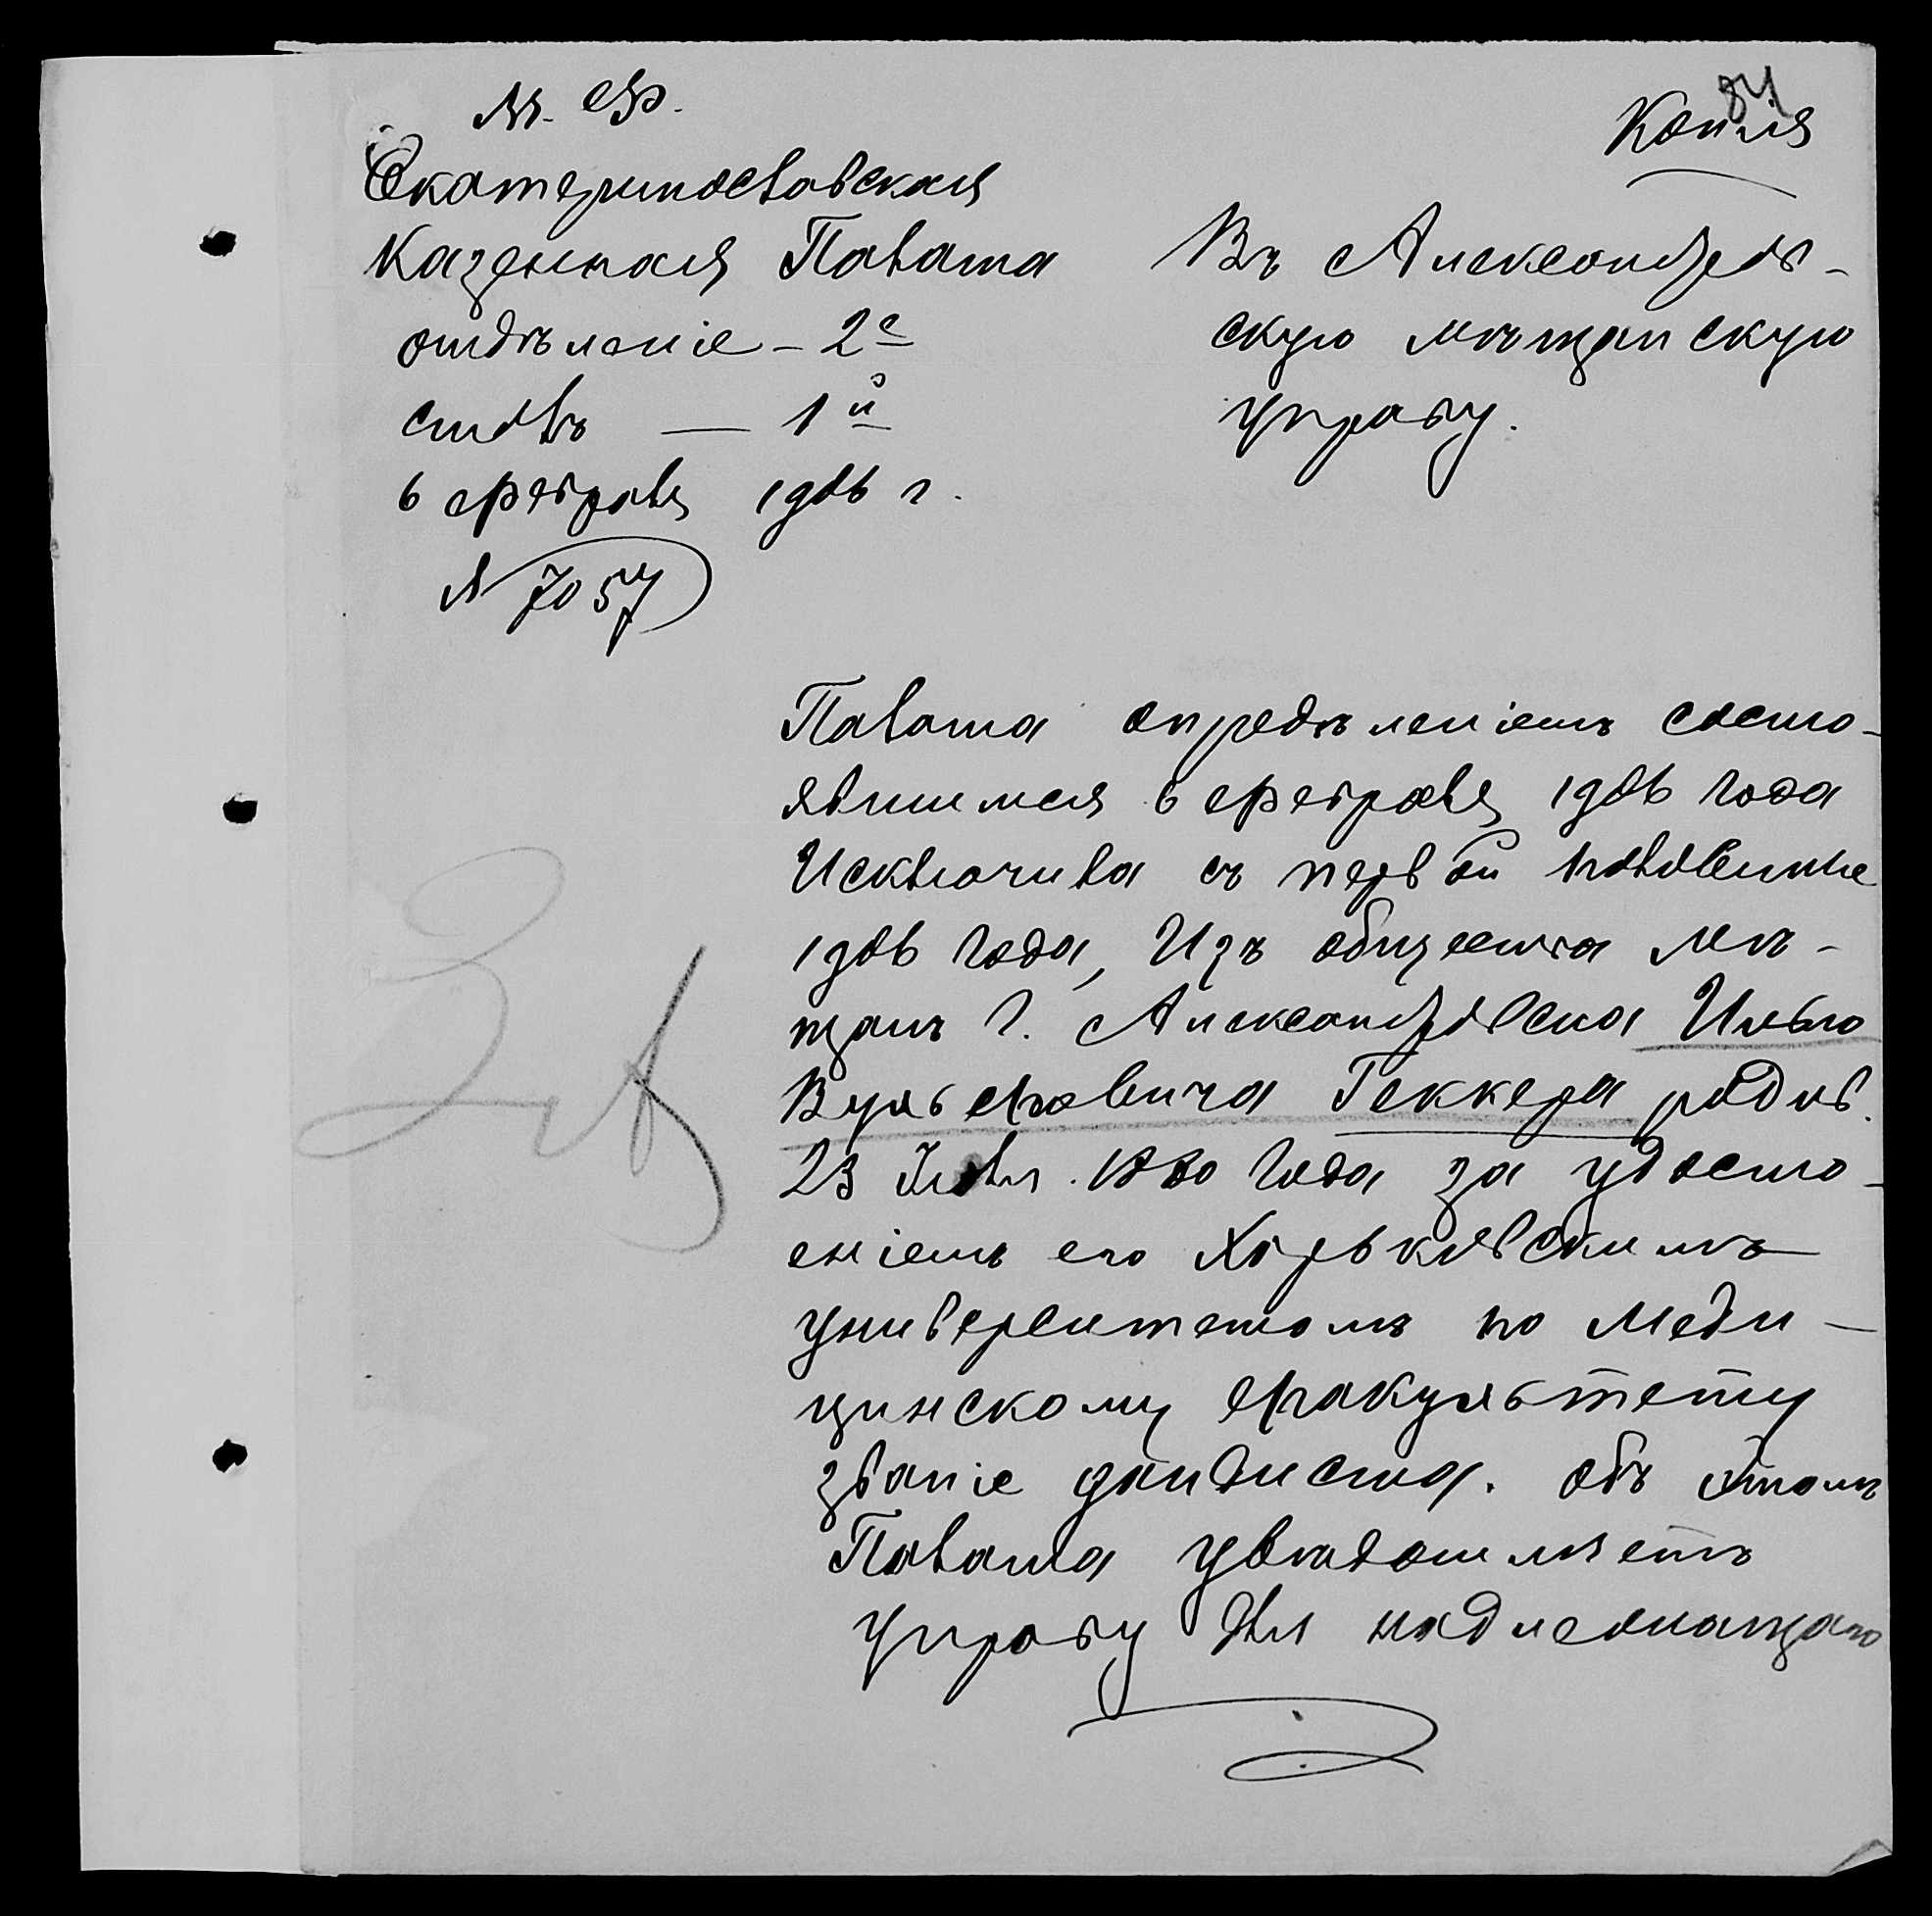 М. Ф.
84
Копія
Екатеринославская
Казенная Палата
отдѣленіе – 2е
столъ — 1й
6 февраля 1906 г.
№ 7057
Въ Александров-
скую мѣщанскую
управу.
Палата опредѣленіемъ состо-
явшимся 6 февраля 1906 года
Исключила съ первой половины
1906 года, Изъ общества мѣ-
щанъ г. Александровска Илью
Вульфовича Геккера родив.
23 Іюля 1880 года за удосто-
еніемъ его Харьковскимъ
университетомъ по Меди-
цинскому факультету
званіе дантиста. объ этомъ
Палата увѣдомляетъ
управу для надлежащаго